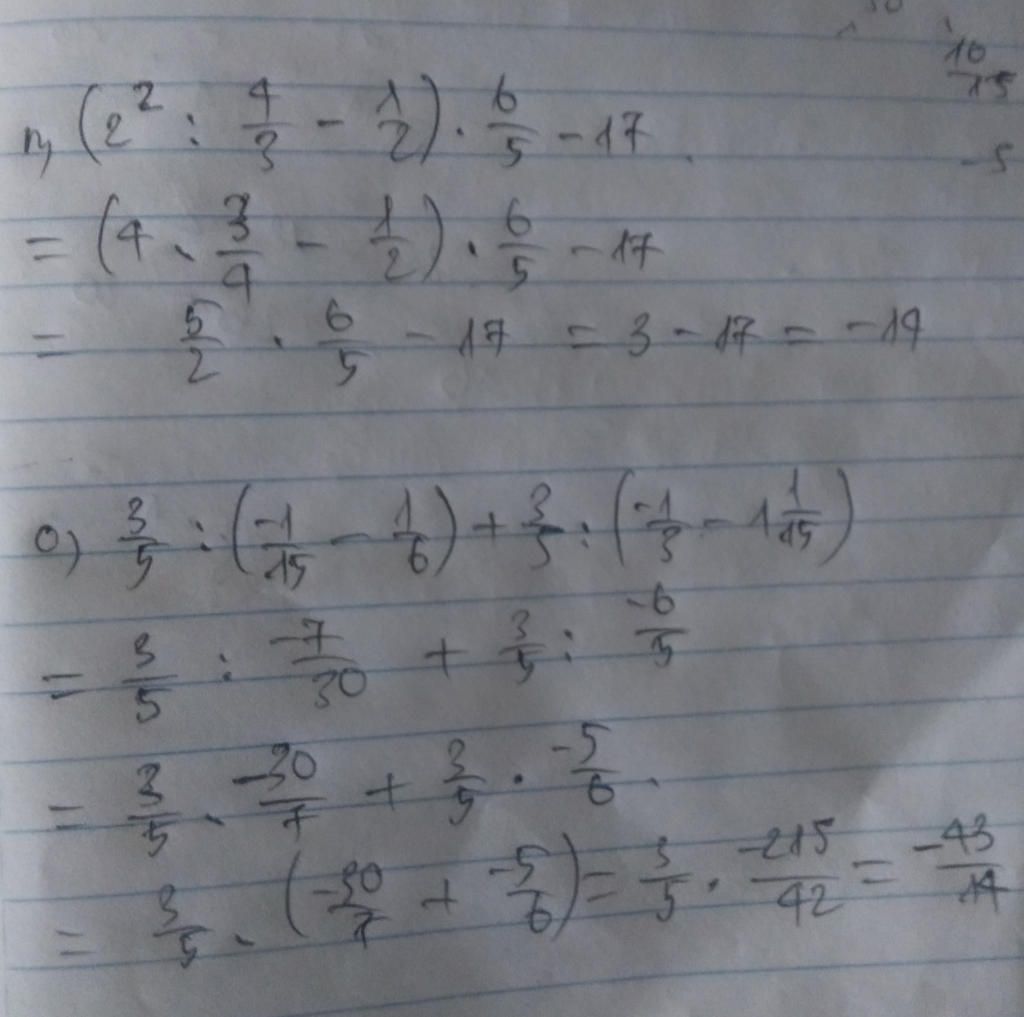 10/15
-5
n) (2² : 4/3 - 1/2) · 6/5 - 17
= (4 · 3/4 - 1/2) · 6/5 - 17
= 5/2 · 6/5 - 17 = 3 - 17 = -14
o) 3/5 : (-1/15 - 1/6) + 3/5 : (-1/3 - 1 1/15)
= 3/5 : -7/30 + 3/5 : -6/5
= 3/5 · -30/7 + 3/5 · -5/6
= 3/5 · (-30/7 + -5/6) = 3/5 · -215/42 = -43/14